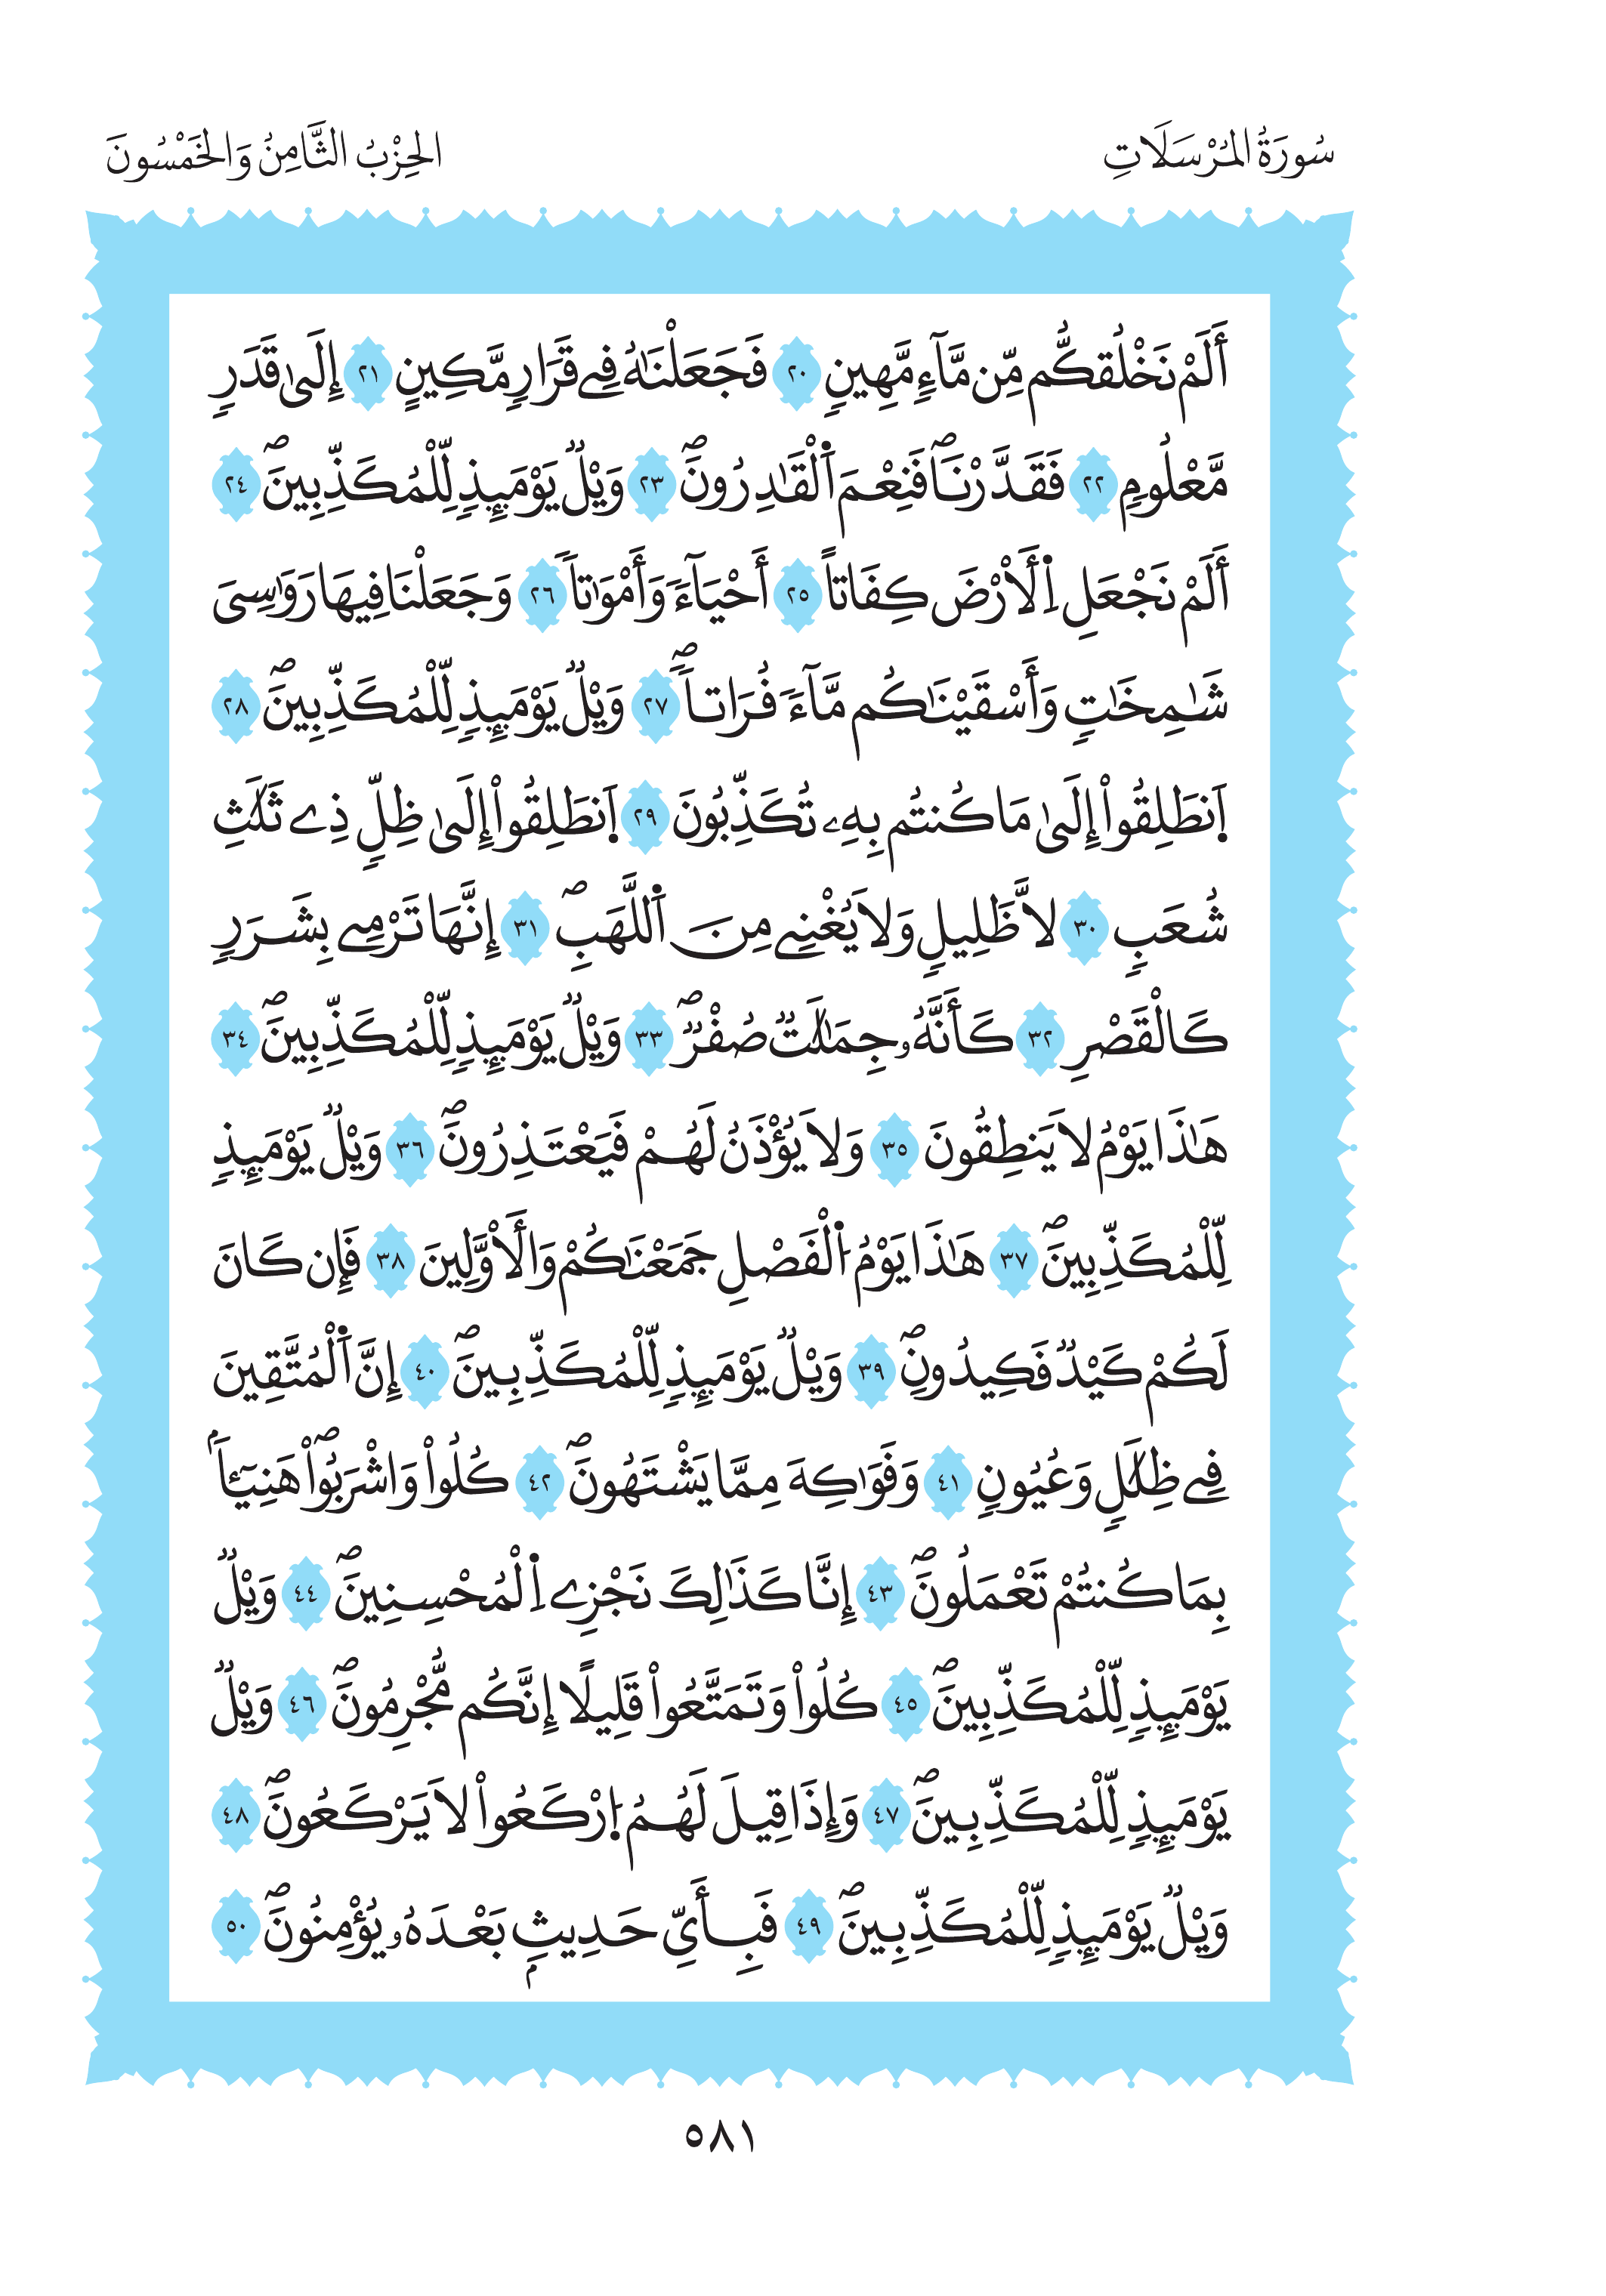 سُورَةُ الْمُرْسَلَاتِ
الحِزْبُ الثَّامِنُ وَالخَمْسُونَ
أَلَمْ نَخْلُقكُّم مِّن مَّآءٖ مَّهِينٖ ٢٠ فَجَعَلْنَٰهُ فِے قَرَارٖ مَّكِينٍ ٢١ إِلَىٰ قَدَرٖ
مَّعْلُومٖ ٢٢ فَقَدَّرْنَاۖ فَنِعْمَ اَ۬لْقَٰدِرُونَۖ ٢٣ وَيْلٞ يَوْمَئِذٖ لِّلْمُكَذِّبِينَۖ ٢٤
أَلَمْ نَجْعَلِ اِ۬لْأَرْضَ كِفَاتاً ٢٥ أَحْيَآءٗ وَأَمْوَٰتاٗ ٢٦ وَجَعَلْنَا فِيهَا رَوَٰسِىَ
شَٰمِخَٰتٖ وَأَسْقَيْنَٰكُم مَّآءٗ فُرَاتاٗۖ ٢٧ وَيْلٞ يَوْمَئِذٖ لِّلْمُكَذِّبِينَۖ ٢٨
اَ۪نطَلِقُواْ إِلَىٰ مَا كُنتُم بِهِۦ تُكَذِّبُونَ ٢٩ اَ۪نطَلِقُواْ إِلَىٰ ظِلّٖ ذِے ثَلَٰثِ
شُعَبٖ ٣٠ لَّا ظَلِيلٖ وَلَا يُغْنِے مِنَ اَ۬للَّهَبِۖ ٣١ إِنَّهَا تَرْمِے بِشَرَرٖ
كَالْقَصْرِ ٣٢ كَأَنَّهُۥ جِمَٰلَٰتٞ صُفْرٞۖ ٣٣ وَيْلٞ يَوْمَئِذٖ لِّلْمُكَذِّبِينَۖ ٣٤
هَٰذَا يَوْمُ لَا يَنطِقُونَ ٣٥ وَلَا يُؤْذَنُ لَهُمْ فَيَعْتَذِرُونَۖ ٣٦ وَيْلٞ يَوْمَئِذٖ
لِّلْمُكَذِّبِينَۖ ٣٧ هَٰذَا يَوْمُ اُ۬لْفَصْلِ جَمَعْنَٰكُمْ وَالْأَوَّلِينَ ٣٨ فَإِن كَانَ
لَكُمْ كَيْدٞ فَكِيدُونِۖ ٣٩ وَيْلٞ يَوْمَئِذٖ لِّلْمُكَذِّبِينَۖ ٤٠ إِنَّ اَ۬لْمُتَّقِينَ
فِے ظِلَٰلٖ وَعُيُونٖ ٤١ وَفَوَٰكِهَ مِمَّا يَشْتَهُونَۖ ٤٢ كُلُواْ وَاشْرَبُواْۖ هَنِيٓـَٔاَۢ
بِمَا كُنتُمْ تَعْمَلُونَۖ ٤٣ إِنَّا كَذَٰلِكَ نَجْزِے اِ۬لْمُحْسِنِينَۖ ٤٤ وَيْلٞ
يَوْمَئِذٖ لِّلْمُكَذِّبِينَۖ ٤٥ كُلُواْ وَتَمَتَّعُواْ قَلِيلًا إِنَّكُم مُّجْرِمُونَۖ ٤٦ وَيْلٞ
يَوْمَئِذٖ لِّلْمُكَذِّبِينَۖ ٤٧ وَإِذَا قِيلَ لَهُمُ اُ۪رْكَعُواْ لَا يَرْكَعُونَۖ ٤٨
وَيْلٞ يَوْمَئِذٖ لِّلْمُكَذِّبِينَۖ ٤٩ فَبِأَيِّ حَدِيثِۢ بَعْدَهُۥ يُؤْمِنُونَۖ ٥٠
٥٨١